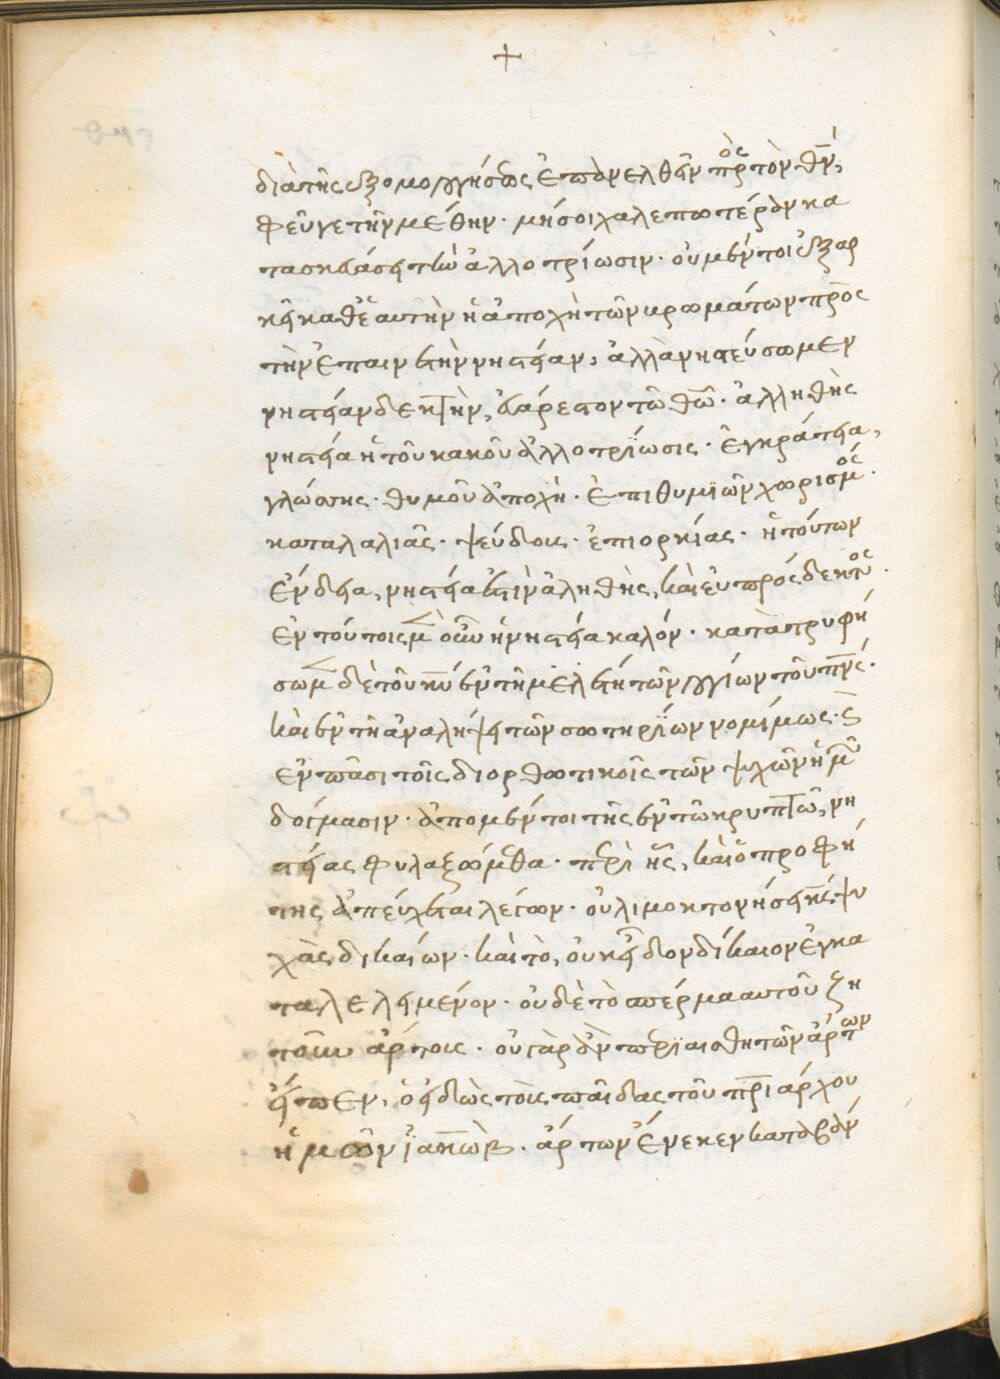 +
διὰ τῆς ἐξομολογήσεως ἐπανελθεῖν πρὸς τὸν θν̅,
φεῦγε τὴν μέθην· μή σοι χαλεπωτέραν κα
τασκευάσῃ τὴν ἀλλοτρίωσιν· οὐ μέντοι ἐξαρ
κεῖ καθ' ἑαυτὴν ἡ ἀποχὴ τῶν βρωμάτων πρὸς
τὴν ἐπαινετὴν νηστείαν, ἀλλὰ νηστεύσωμεν
νηστείαν δεκτὴν, εὐάρεστον τῶ θω̅· ἀληθὴς
νηστεία ἡ τοῦ κακοῦ ἀλλοτρίωσις· ἐγκράτεια,
γλώσσης· θυμοῦ ἀποχὴ· ἐπιθυμϊῶν χωρισμός·
καταλαλιᾶς· ψεύδους· ἐπιορκίας· ἡ τούτων
ἔνδεια, νηστεία ἐστὶν ἀληθὴς, καὶ εὐπρόσδεκτος·
ἐν τούτοις μὲν οὖν ἡ νηστεία καλόν· κατατρυφή
σωμεν δὲ τοῦ κυ̅ ἐν τῆ μελέτη τῶν λογίων τοῦ πνς̅·
καὶ ἐν τῆ ἀναλήψει τῶν σωτηρίων νομίμων· καὶ
ἐν πᾶσι τοῖς διορθωτικοῖς τῶν ψυχῶν ἡμῶν
δόγμασιν· ἀπὸ μέντοι τῆς ἐν τῶ κρυπτῶ, νη
στείας φυλαξώμεθα· περὶ ἧς, καὶ ὁ προφή
της ἀπεύχεται λέγων· οὐ λιμοκτονήσει κς̅ ψυ
χὰς δικαίων· καὶ τὸ, οὐκ εἶδον δίκαιον ἐγκα
ταλελειμένον· οὐδὲ τὸ σπέρμα αυτοῦ ζη
τοῦν ἄρτους· οὐ γὰρ δὴ περὶ αισθητῶν ἄρτων
εἴπεν, ὁ εἰδὼς τοὺς παῖδας τοῦ πριάρχου
ἡμῶν ϊακὼβ· ἄρτων ἕνεκεν καταβάν